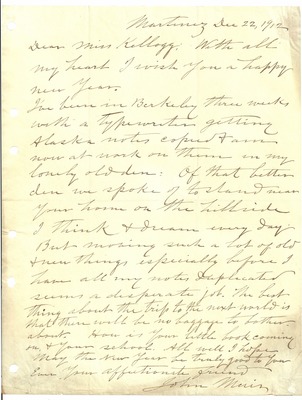 Martinez Dec 22, 1912
Dear Miss Kellogg. With all
my heart I wish you a happy
new Year.
I've been in Berkeley three weeks
with a typewriter getting
Alaska notes copied & am
now at work on them in my
lonely old den: Of that better
den we spoke of to stand near
Your home on the hillside
I think & dream every day
But moving such a lot of old
& new things especially before I
have all my notes Duplicated
seems a desperate job. The best
thing about the trip to the next world is
that there will be no baggage to bother
about. How is your little book coming
on & Your school. All well I hope
May the New Year be truly good to You
Ever Your affectionate friend
John Muir